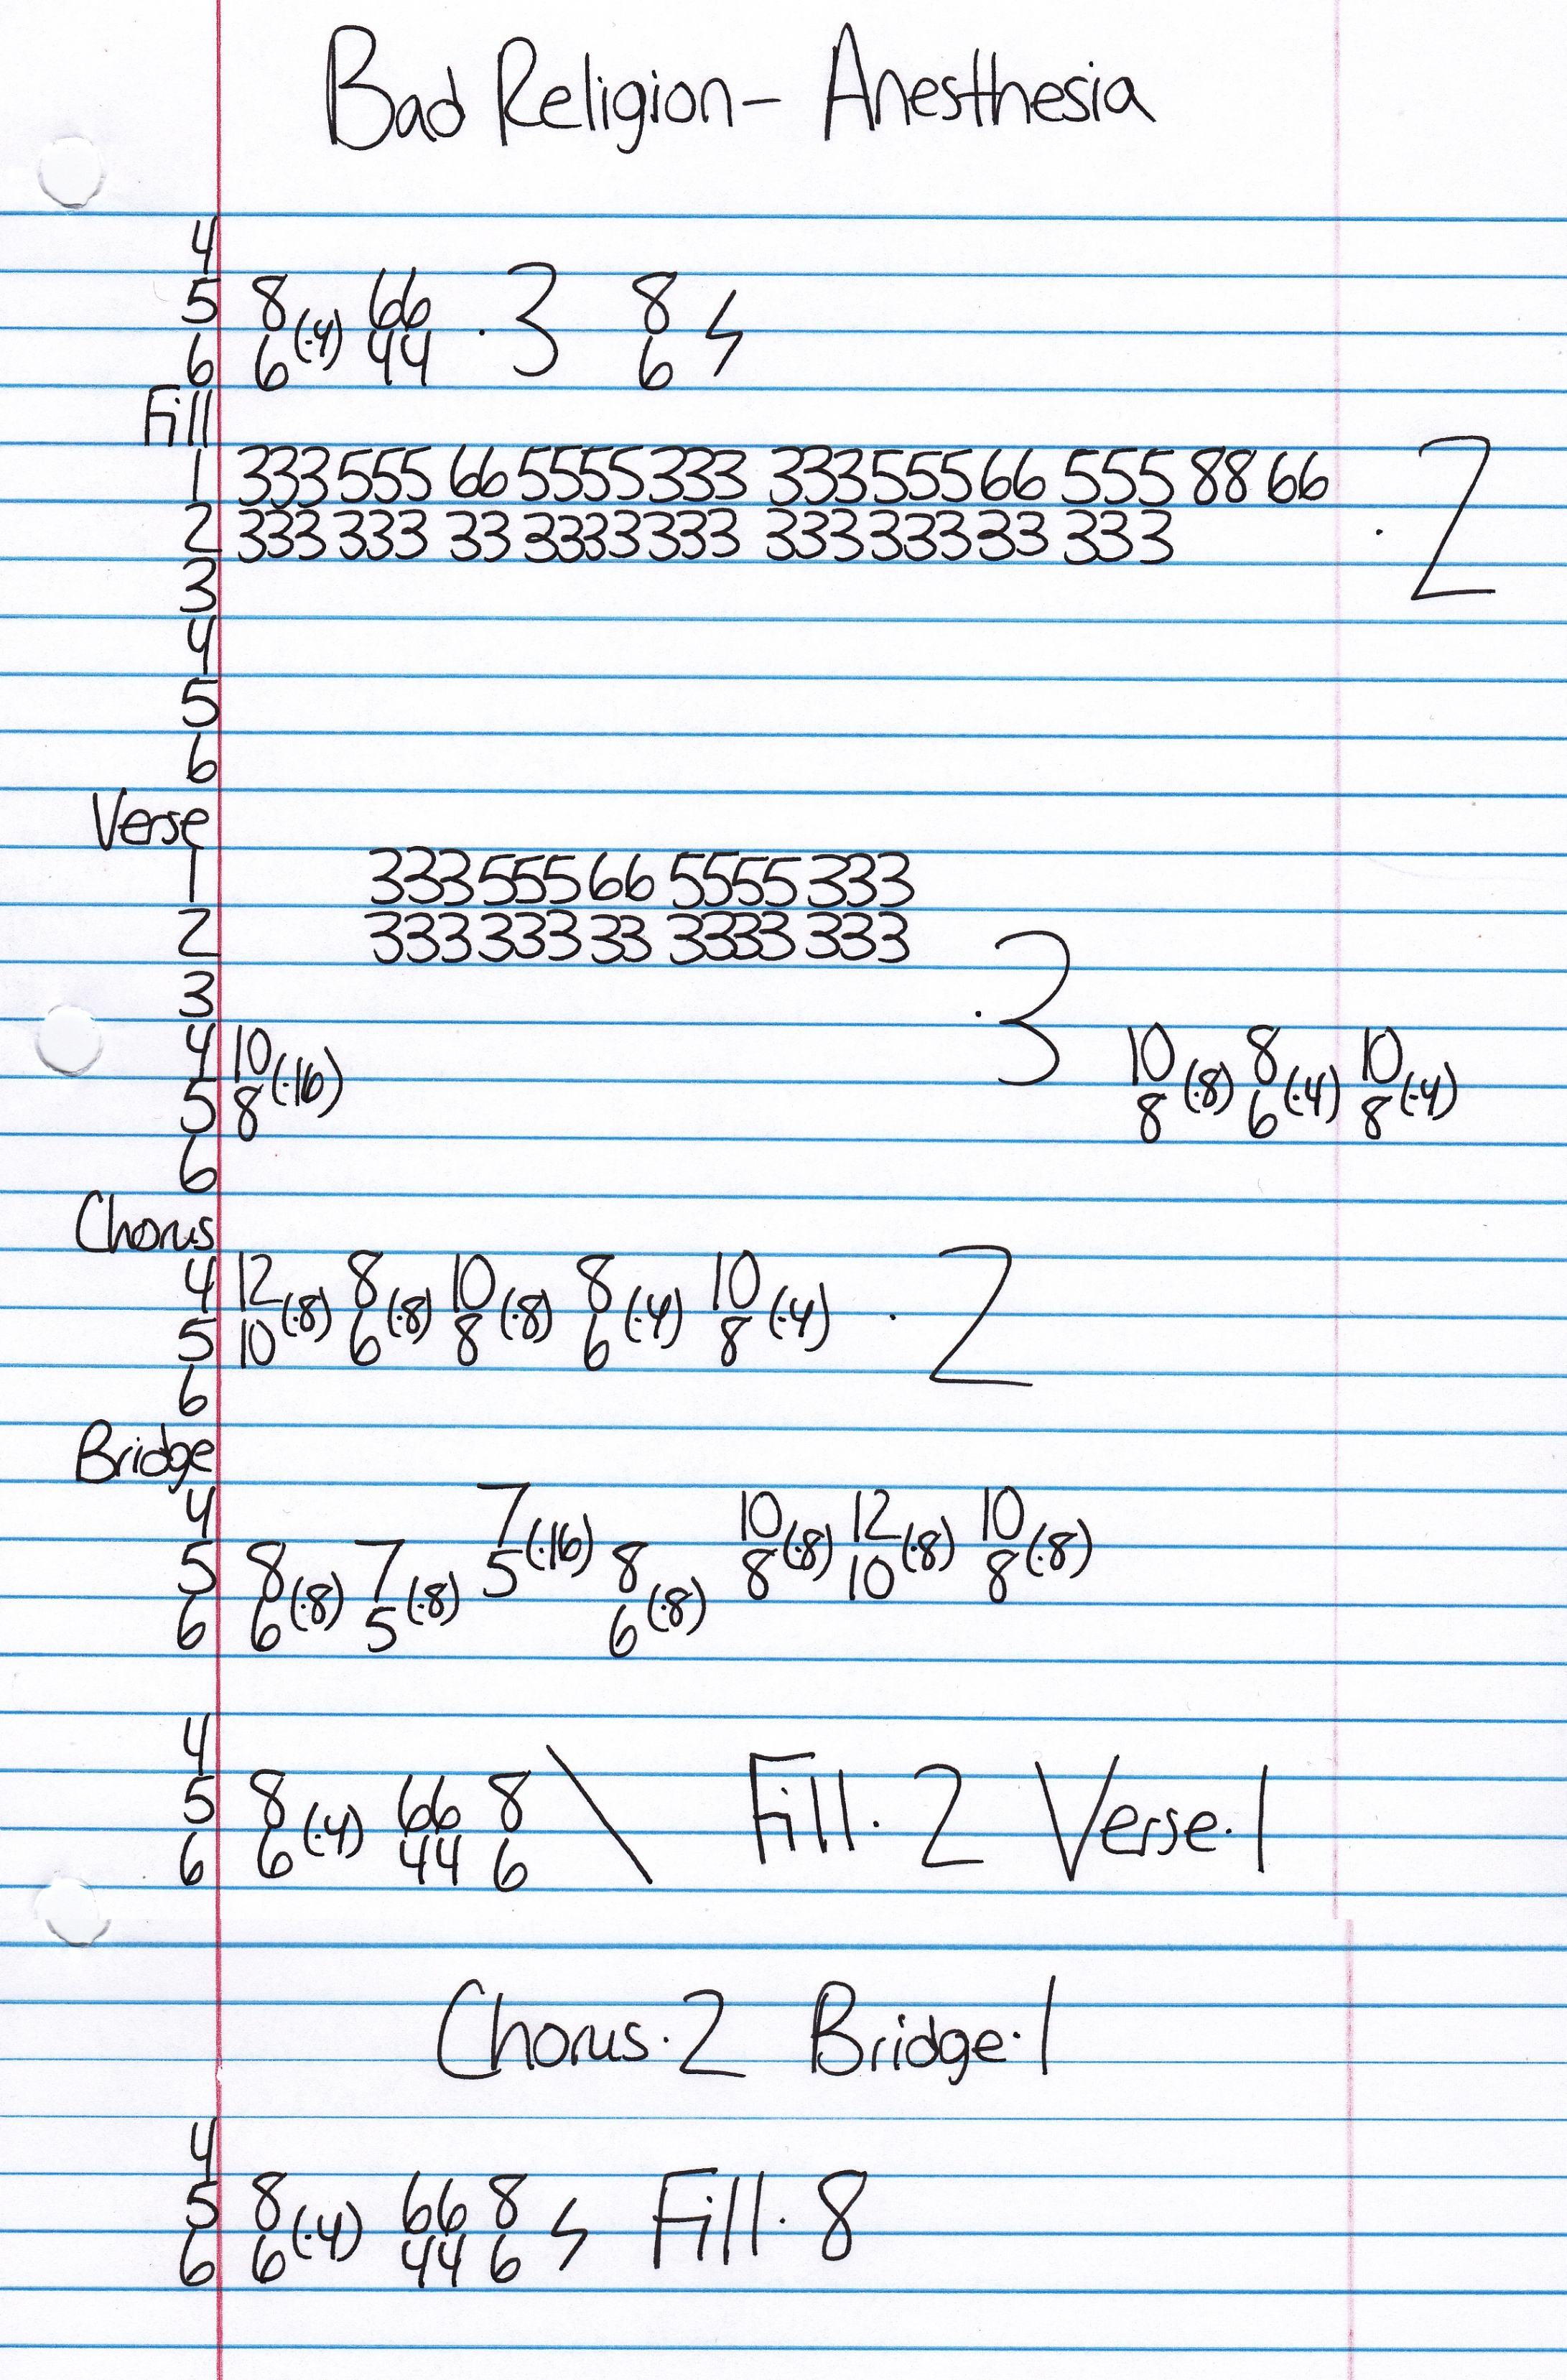 Bad Religion- Anesthesia
4
5 8(·4) 66 ·3 8
6 6 44 6
Fill
1 333 555 66 5555 333 333 555 66 555 88 66 ·2
2 333 333 33 3333 333 333 333 33 333
3
4
5
6
Verse
1 333 555 66 5555 333
2 333 333 33 3333 333
3 ·3
4 10(·16) 10(·8) 8(·4) 10(·4)
5 8 8 6 8
6
Chorus
4 12(·8) 8(·8) 10(·8) 8(·4) 10(·4) ·2
5 10 6 8 6 8
6
Bridge
4 7(·16) 10(·8) 12(·8) 10(·8)
5 8(·8) 7(·8) 5 8(·8) 8 10 8
6 6 5 6
4
5 8(·4) 66 8 \ Fill·2 Verse·1
6 6 44 6
Chorus·2 Bridge·1
4
5 8(·4) 66 8 Fill·8
6 6 44 6